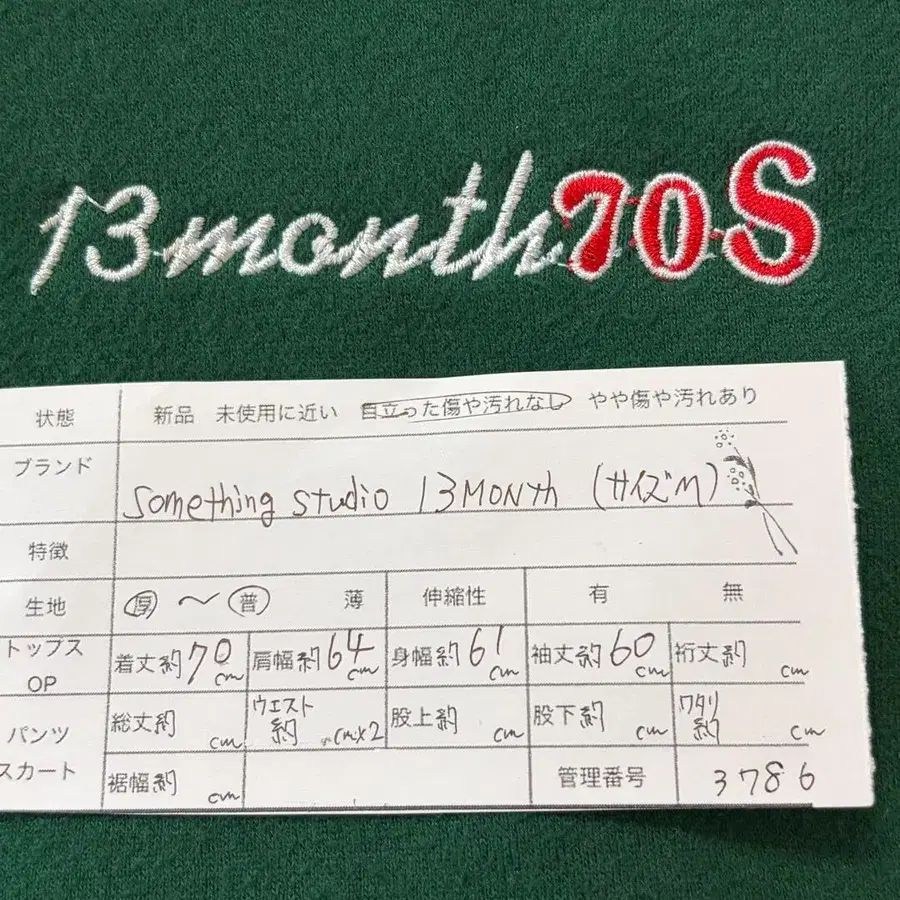 13month70S
状態 新品 未使用に近い 目立った傷や汚れなし やや傷や汚れあり
ブランド something studio 13MONTH (サイズM)
特徴
生地 厚 〜 普 薄 伸縮性 有 無
トップス OP 着丈約70cm 肩幅約64cm 身幅約61cm 袖丈約60cm 裄丈約 cm
パンツ 総丈約 cm ウエスト約 cm×2 股上約 cm 股下約 cm ワタリ約 cm
スカート 裾幅約 cm 管理番号 3786